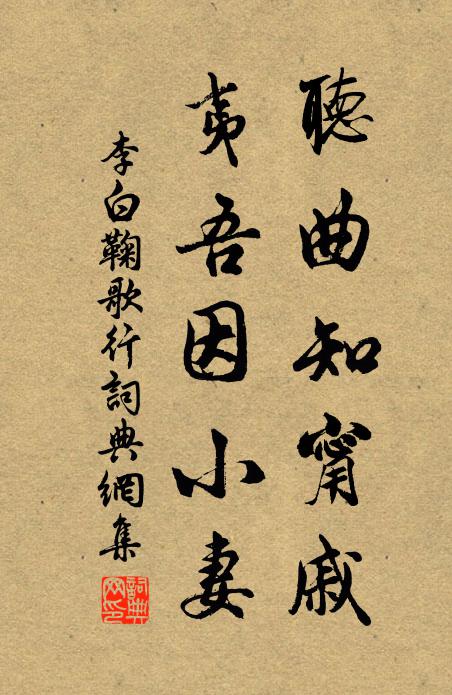 聽曲知甯戚
夷吾因小妻
李白鞠歌行詞典網集
詞典網印